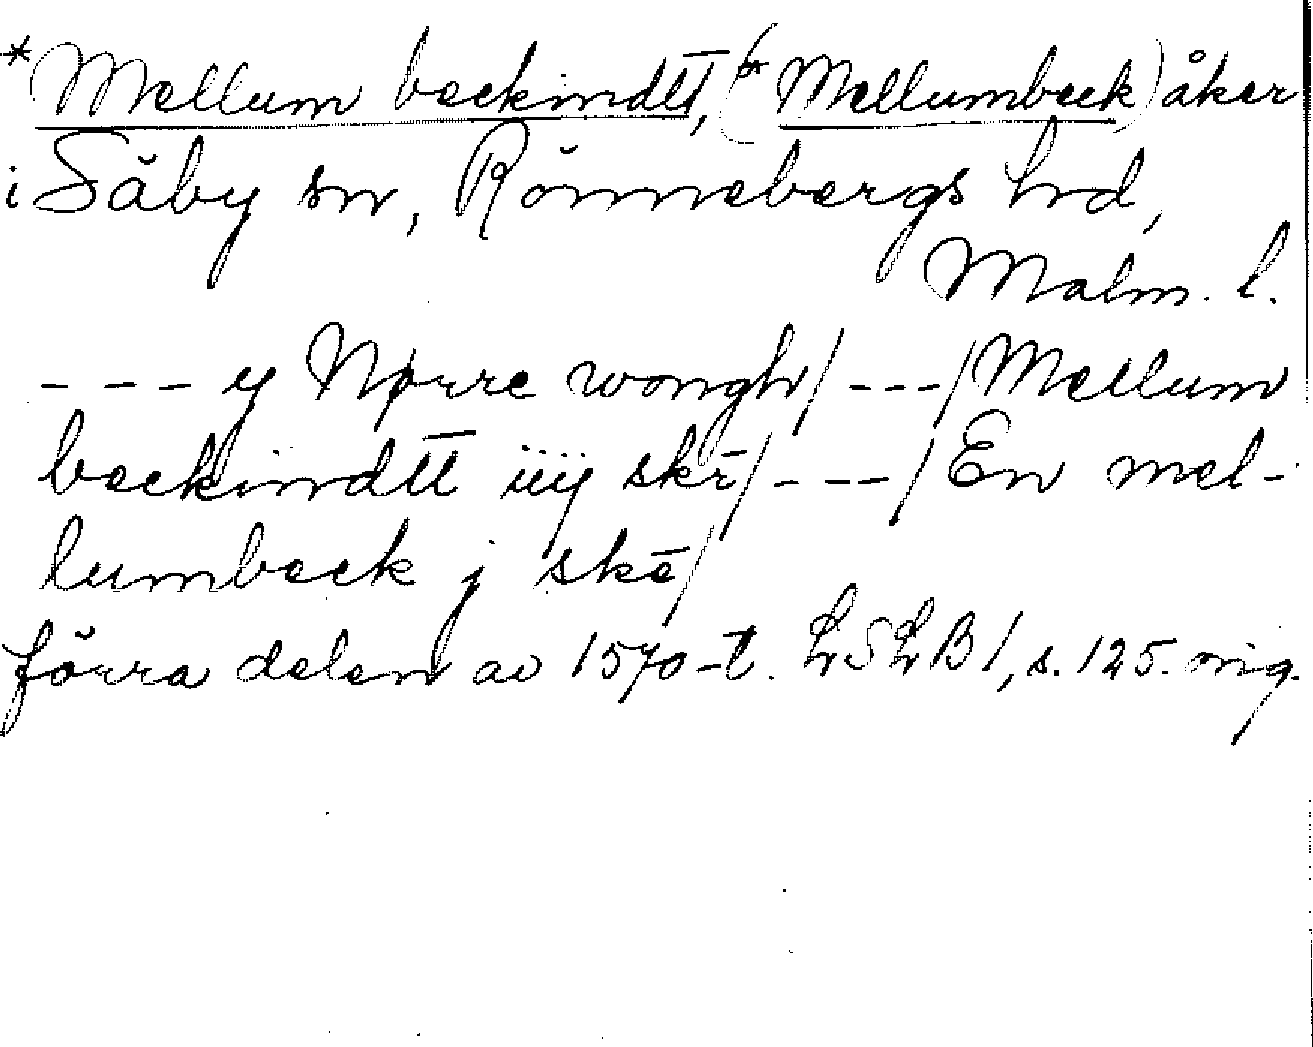 *Mellum beckindtt̄, (*Mellumbeck) åker
i Säby sn, Rönnebergs hd,
Malm. l.
--- y Nørre wongh/---/Mellum
beckindtt̄ iiij skē/---/En mel-
lumbeck j skē/
förra delen av 1570-t. LSLB 1, s. 125. orig.